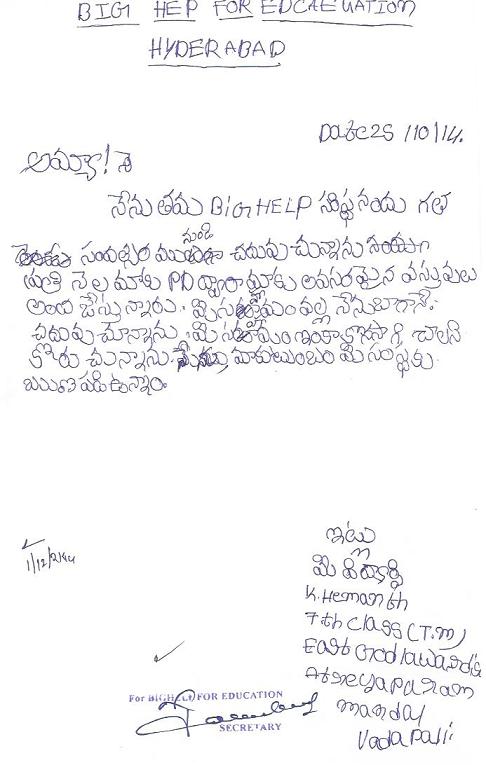 BIG HEP FOR EDCAEUATION
HYDERABAD
Date 25/10/14.
అమ్మా!
నేను తమ BIG HELP సంస్థనందు గత
నుండి
సంవత్సర చదువు చున్నాను
నెల మాకు PD ద్వారా మాకు అవసరమైన వస్తువులు
అంద జేస్తున్నారు. మీ సహాయం వల్ల నేను బాగా
చదువు చున్నాను. మీ సహాయం ఇంకా కొనసాగించాలని
కోరు చున్నాను. మా కుటుంబం మీ సంస్థకు
ఋణ పడి ఉన్నాం.
ఇట్లు
మీ విద్యార్థి
K. Hemanth
7th class (T.M)
East Godlawaridis
Atreyapuram
mandal
Vadapalli
For BIGHELP FOR EDUCATION
SECRETARY